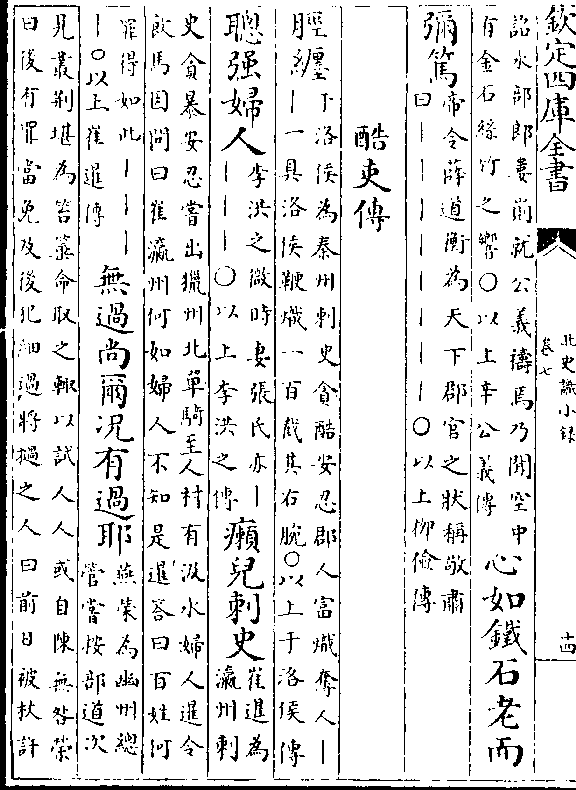 欽定四庫全書
北史識小錄
卷七
十四
詔水部郎婁崱就公義禱焉乃聞空中
有金石絲竹之響〇以上辛公義傳
心如鐵石老而
彌篤
帝令薛道衡為天下郡官之狀稱敬肅
曰｜｜｜｜｜｜〇以上柳儉傳
酷吏傳
脛纏
于洛侯為秦州刺史貪酷安忍郡人富熾奪人｜
｜一具洛侯鞭熾一百截其右腕〇以上于洛侯傳
聰强婦人
李洪之微時妻張氏亦｜
｜｜｜〇以上李洪之傳
癩兒刺史
崔暹為
瀛州刺
史貪暴安忍嘗出獵州北單騎至人村有汲水婦人暹令
飲馬因問曰崔瀛州何如婦人不知是暹答曰百姓何
罪得如此｜｜｜
｜〇以上崔暹傳
無過尚爾况有過耶
燕榮為幽州總
管嘗按部道次
見叢荆堪為笞箠命取之輒以試人人或自陳無咎榮
曰後有罪當免及後犯細過將撾之人曰前日被杖許